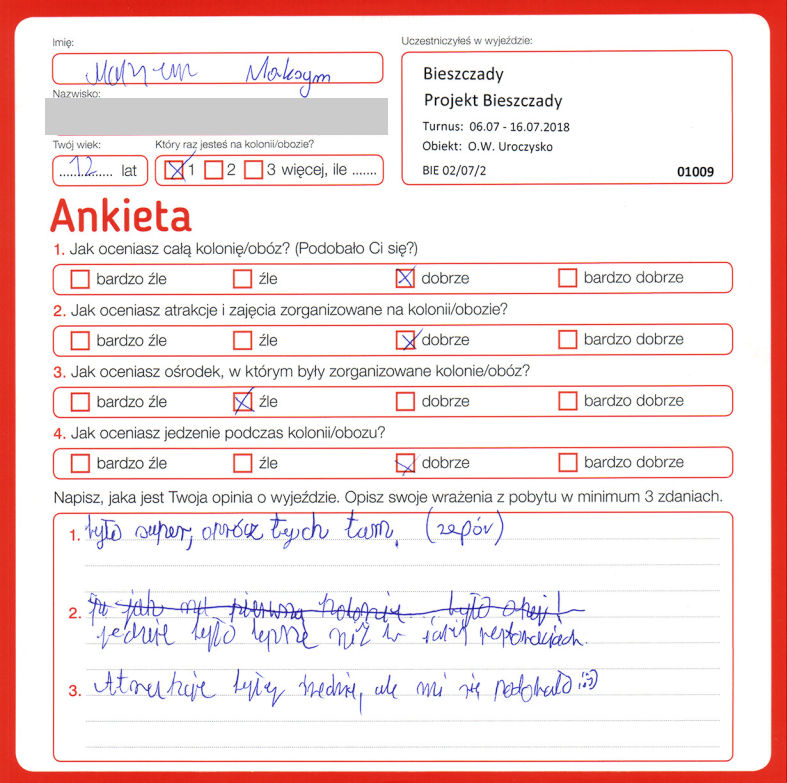 Imię:
Maksym
Nazwisko:
Twój wiek:
12 lat
Który raz jesteś na kolonii/obozie?
1 2 3 więcej, ile .......
Uczestniczyłeś w wyjeździe:
Bieszczady
Projekt Bieszczady
Turnus: 06.07 - 16.07.2018
Obiekt: O.W. Uroczysko
BIE 02/07/2 01009
Ankieta
1. Jak oceniasz całą kolonię/obóz? (Podobało Ci się?)
bardzo źle źle dobrze bardzo dobrze
2. Jak oceniasz atrakcje i zajęcia zorganizowane na kolonii/obozie?
bardzo źle źle dobrze bardzo dobrze
3. Jak oceniasz ośrodek, w którym były zorganizowane kolonie/obóz?
bardzo źle źle dobrze bardzo dobrze
4. Jak oceniasz jedzenie podczas kolonii/obozu?
bardzo źle źle dobrze bardzo dobrze
Napisz, jaka jest Twoja opinia o wyjeździe. Opisz swoje wrażenia z pobytu w minimum 3 zdaniach.
1. było super, oprócz tych tam. (zepów)
2. jak na pierwszą kolonię było okej!
było lepsze niż w
3. były średnie, ale mi się podobało :)